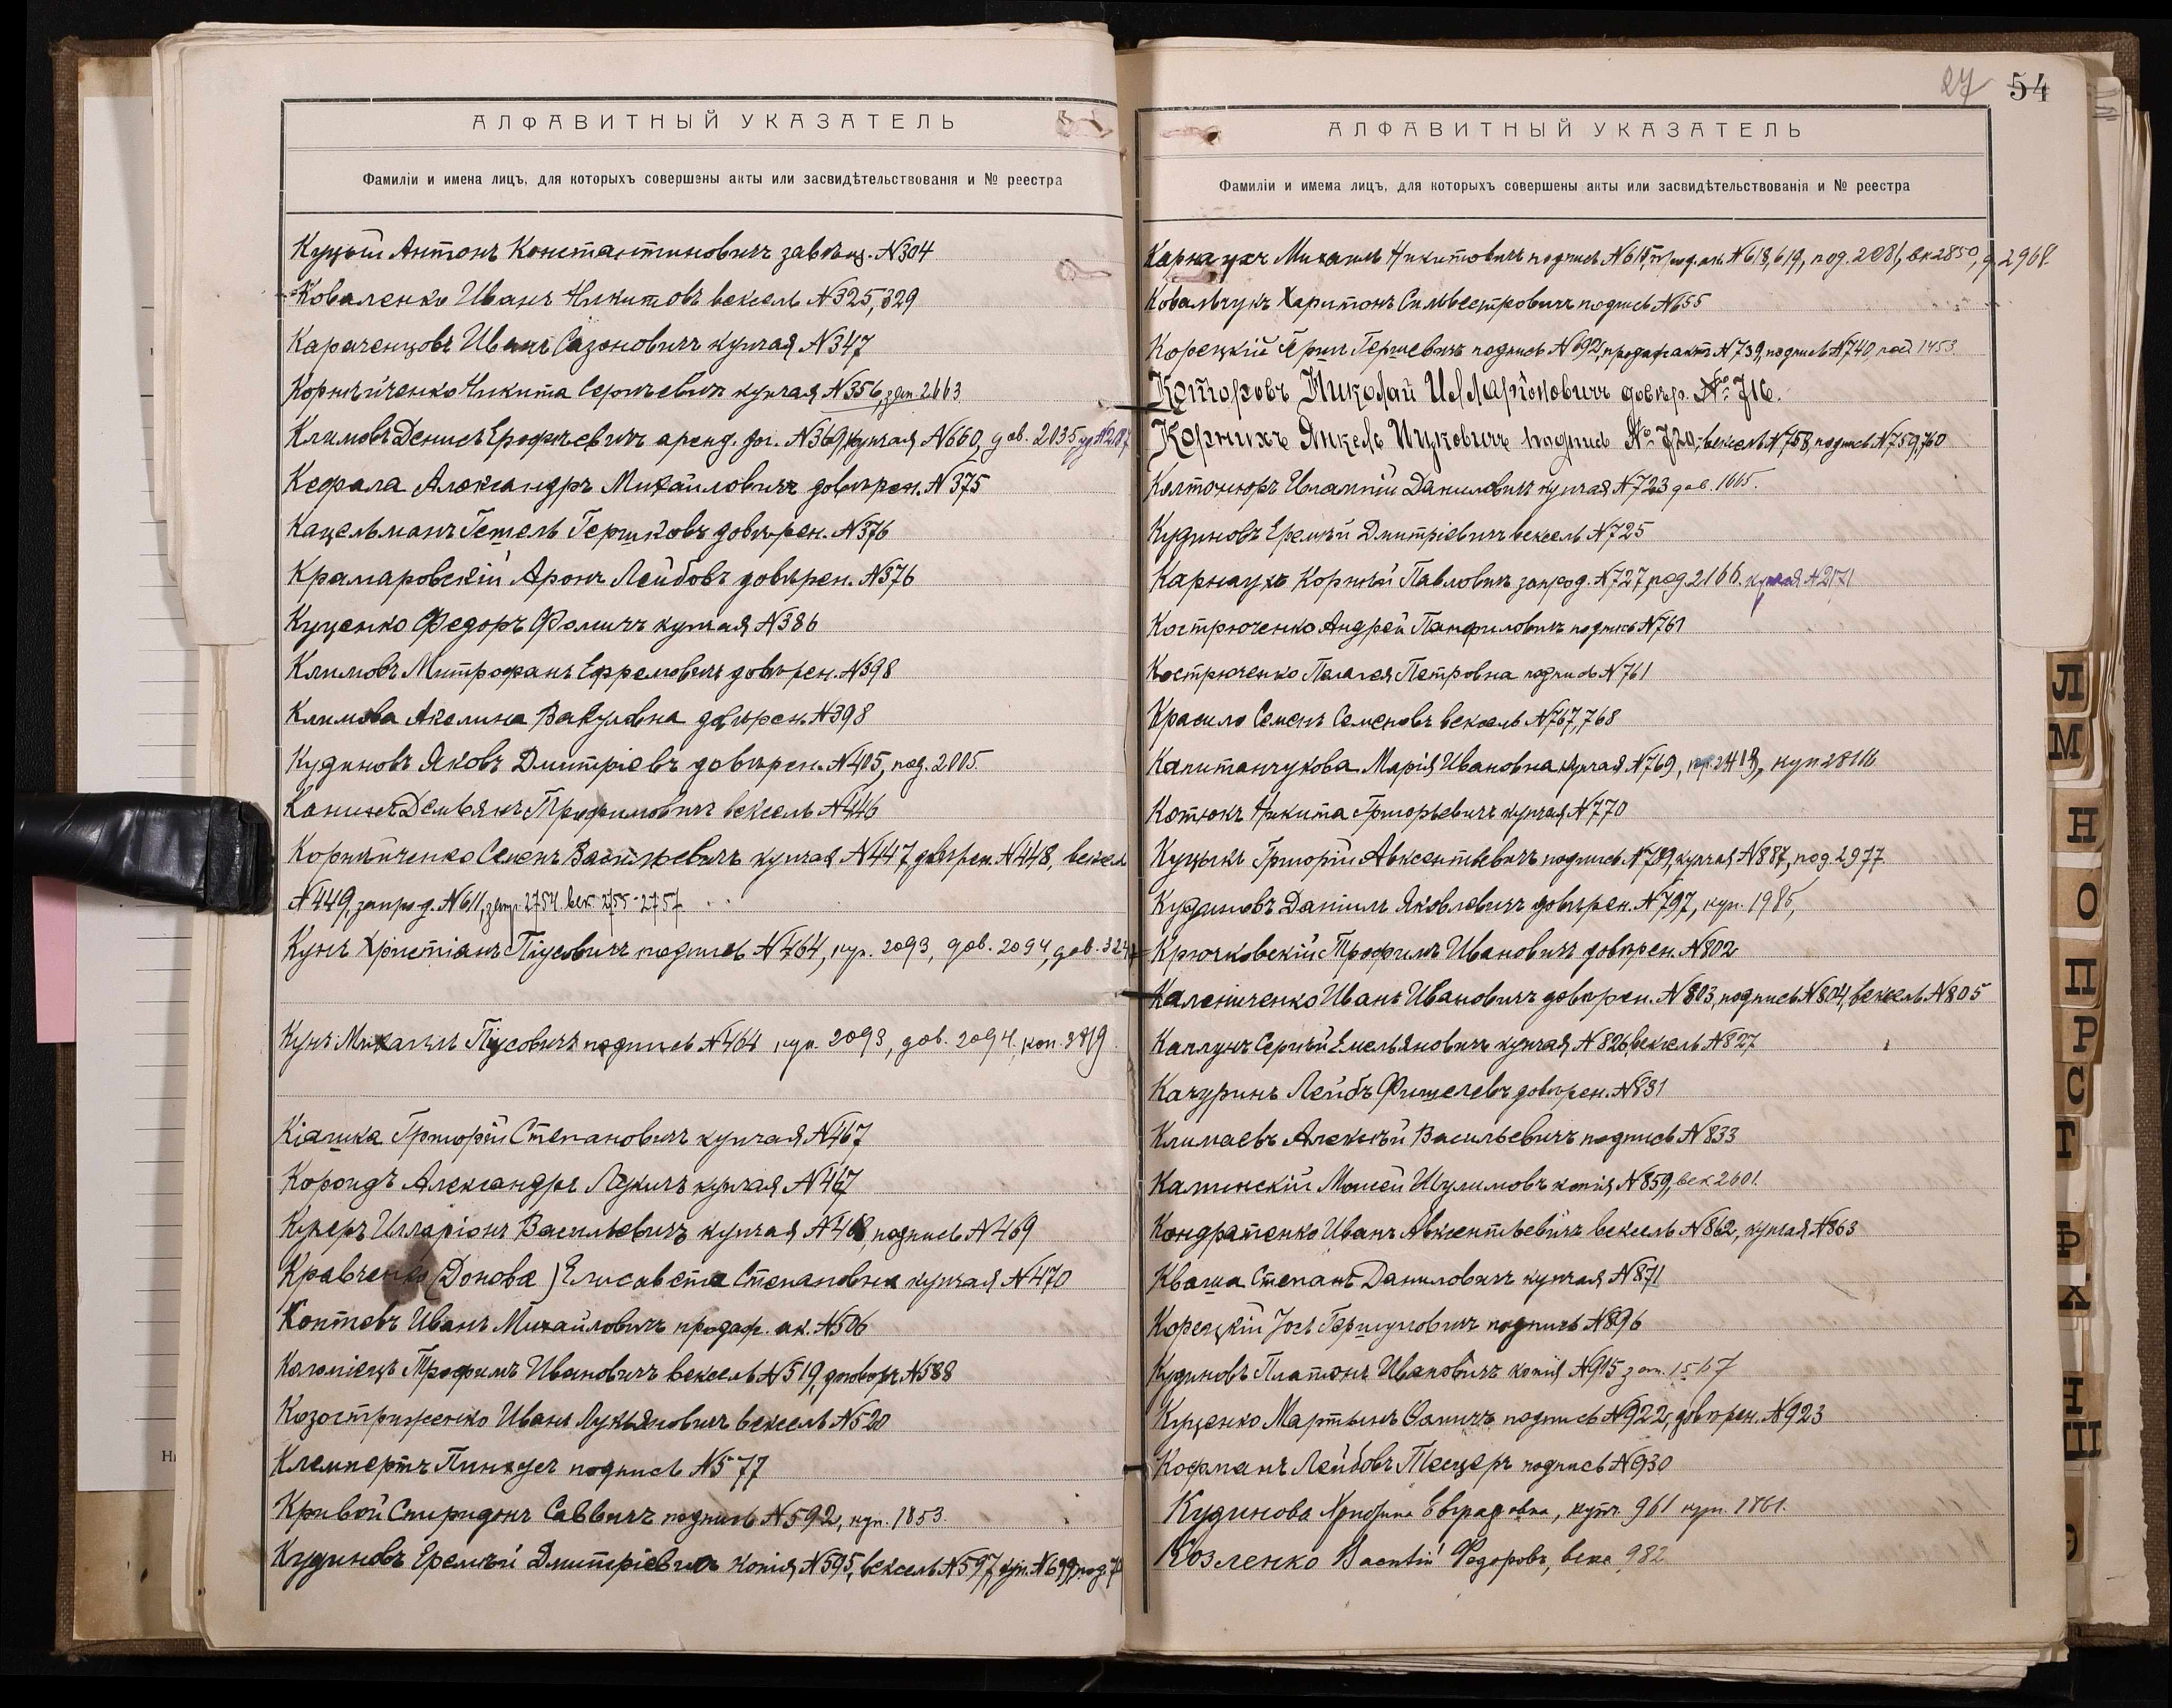 АЛФАВИТНЫЙ УКАЗАТЕЛЬ
Фамиліи и имена лицъ, для которыхъ совершены акты или засвидѣтельствованія и № реестра
Куцый Антонъ Константиновичъ завѣщ. №304
Коваленко Иванъ Никитовъ вексель №325, 329
Караченцовъ Иванъ Сазоновичъ купчая №347
Корнѣйченко Никита Сергѣевичъ купчая №356, 2663
Климовъ Денисъ Ерофѣевичъ аренд. дог. №369, купчая №660, дов. 2035
Кефала Александръ Михайловичъ довѣрен. №375
Кацельманъ Гетель Гершковъ довѣрен. №376
Крамаровскій Аронъ Лейбовъ довѣрен. №376
Куценко Федоръ Фомичъ купчая №386
Климовъ Митрофанъ Ефремовичъ довѣрен. №398
Климова Акелина Вакуловна довѣрен. №398
Кудиновъ Яковъ Дмитріевъ довѣрен. №405, под. 2005
Канинъ Демьянъ Трофимовичъ вексель №446
Корнѣйченко Семенъ Васильевичъ купчая №447 довѣрен. №448, вексел
№449, запрод. №611, 2754 век. 2755-2757
Кунъ Христіанъ Піусовичъ подпись №464, кур. 2093, дов. 2094, дов.
Кунъ Михаилъ Піусовичъ подпись №464 кур. 2093, дов. 2094, коп.
Кіашка Григорій Степановичъ купчая №467
Короидъ Александръ Лукичъ купчая №467
Куперъ Илларіонъ Васильевичъ купчая №468, подпись №469
Кравченко (Донова) Елисавета Степановна купчая №470
Коптевъ Иванъ Михайловичъ продаж. ак. №506
Коломіецъ Трофимъ Ивановичъ вексель №519, договоръ №588
Козостриженко Иванъ Лукьяновичъ вексель №520
Клемпертъ Пинхусъ подпись №577
Кривой Спиридонъ Саввичъ подпись №592, куп. 1853
Кудиновъ Еремѣй Дмитріевичъ копія №595, вексель №597, куп. №699, под.
27 54
АЛФАВИТНЫЙ УКАЗАТЕЛЬ
Фамиліи и имема лицъ, для которыхъ совершены акты или засвидѣтельствованія и № реестра
Карнаухъ Михаилъ Никитовичъ подпись №618, прод. ак. №618, 619, под. 2081, вк 2850, д. 2968.
Ковальчукъ Харитонъ Сильвестровичъ подпись №655
Корецкій Гершевичъ подпись №692, продаж. актъ №739, подпись №740, 1453
Которовъ Николай Илларіоновичъ довѣр. № 716.
Корнихъ Янкель Ицковичъ подпись № 720, вексель №758, подпись №759, 760
Колтонюръ Евлампій Даниловичъ купчая №723 дов. 1665.
Кудиновъ Еремѣй Дмитріевичъ вексель №725
Карнаухъ Корнѣй Павловичъ запрод. №727, под. 2166. купчая №2171
Кострюченко Андрей Панфиловичъ подпись №761
Кострюченко Пелагея Петровна подпись №761
Красило Семенъ Семеновъ вексель №767, 768
Капитанчукова Марія Ивановна купчая №769, куп
Котюкъ Никита Григорьевичъ купчая №770
Куцыкъ Григорій Авксентьевичъ подпись №789, купчая №887, под. 2977
Кудиновъ Даніилъ Яковлевичъ довѣрен. №797, куп. 1985,
Крючковскій Трофимъ Ивановичъ довѣрен. №802
Калениченко Иванъ Ивановичъ довѣрен. №803, подпись №804, вексель №805
Каплунъ Сергѣй Емельяновичъ купчая №826, вексель №827
Качуринъ Лейбъ Фишелевъ довѣрен. №831
Климаевъ Алексѣй Васильевичъ подпись №833
Калинскій Моисей Шулимовъ копія №859, век 2601.
Кондратенко Иванъ Авксентьевичъ вексель №862, купчая №863
Кваша Степанъ Даниловичъ купчая №871
Корецкій Іось Гершуновичъ подпись №896
Кудиновъ Платонъ Ивановичъ копія №915 1567
Куценко Мартынъ Фомичъ подпись №922, довѣрен. №923
Кофманъ Лейбовъ подпись №930
Кудинова Евградовна, купч. 961 куп. 1861.
Козленко Федоровъ, векс 982
Л
М
Н
О
П
Р
С
Т
Ф
Х